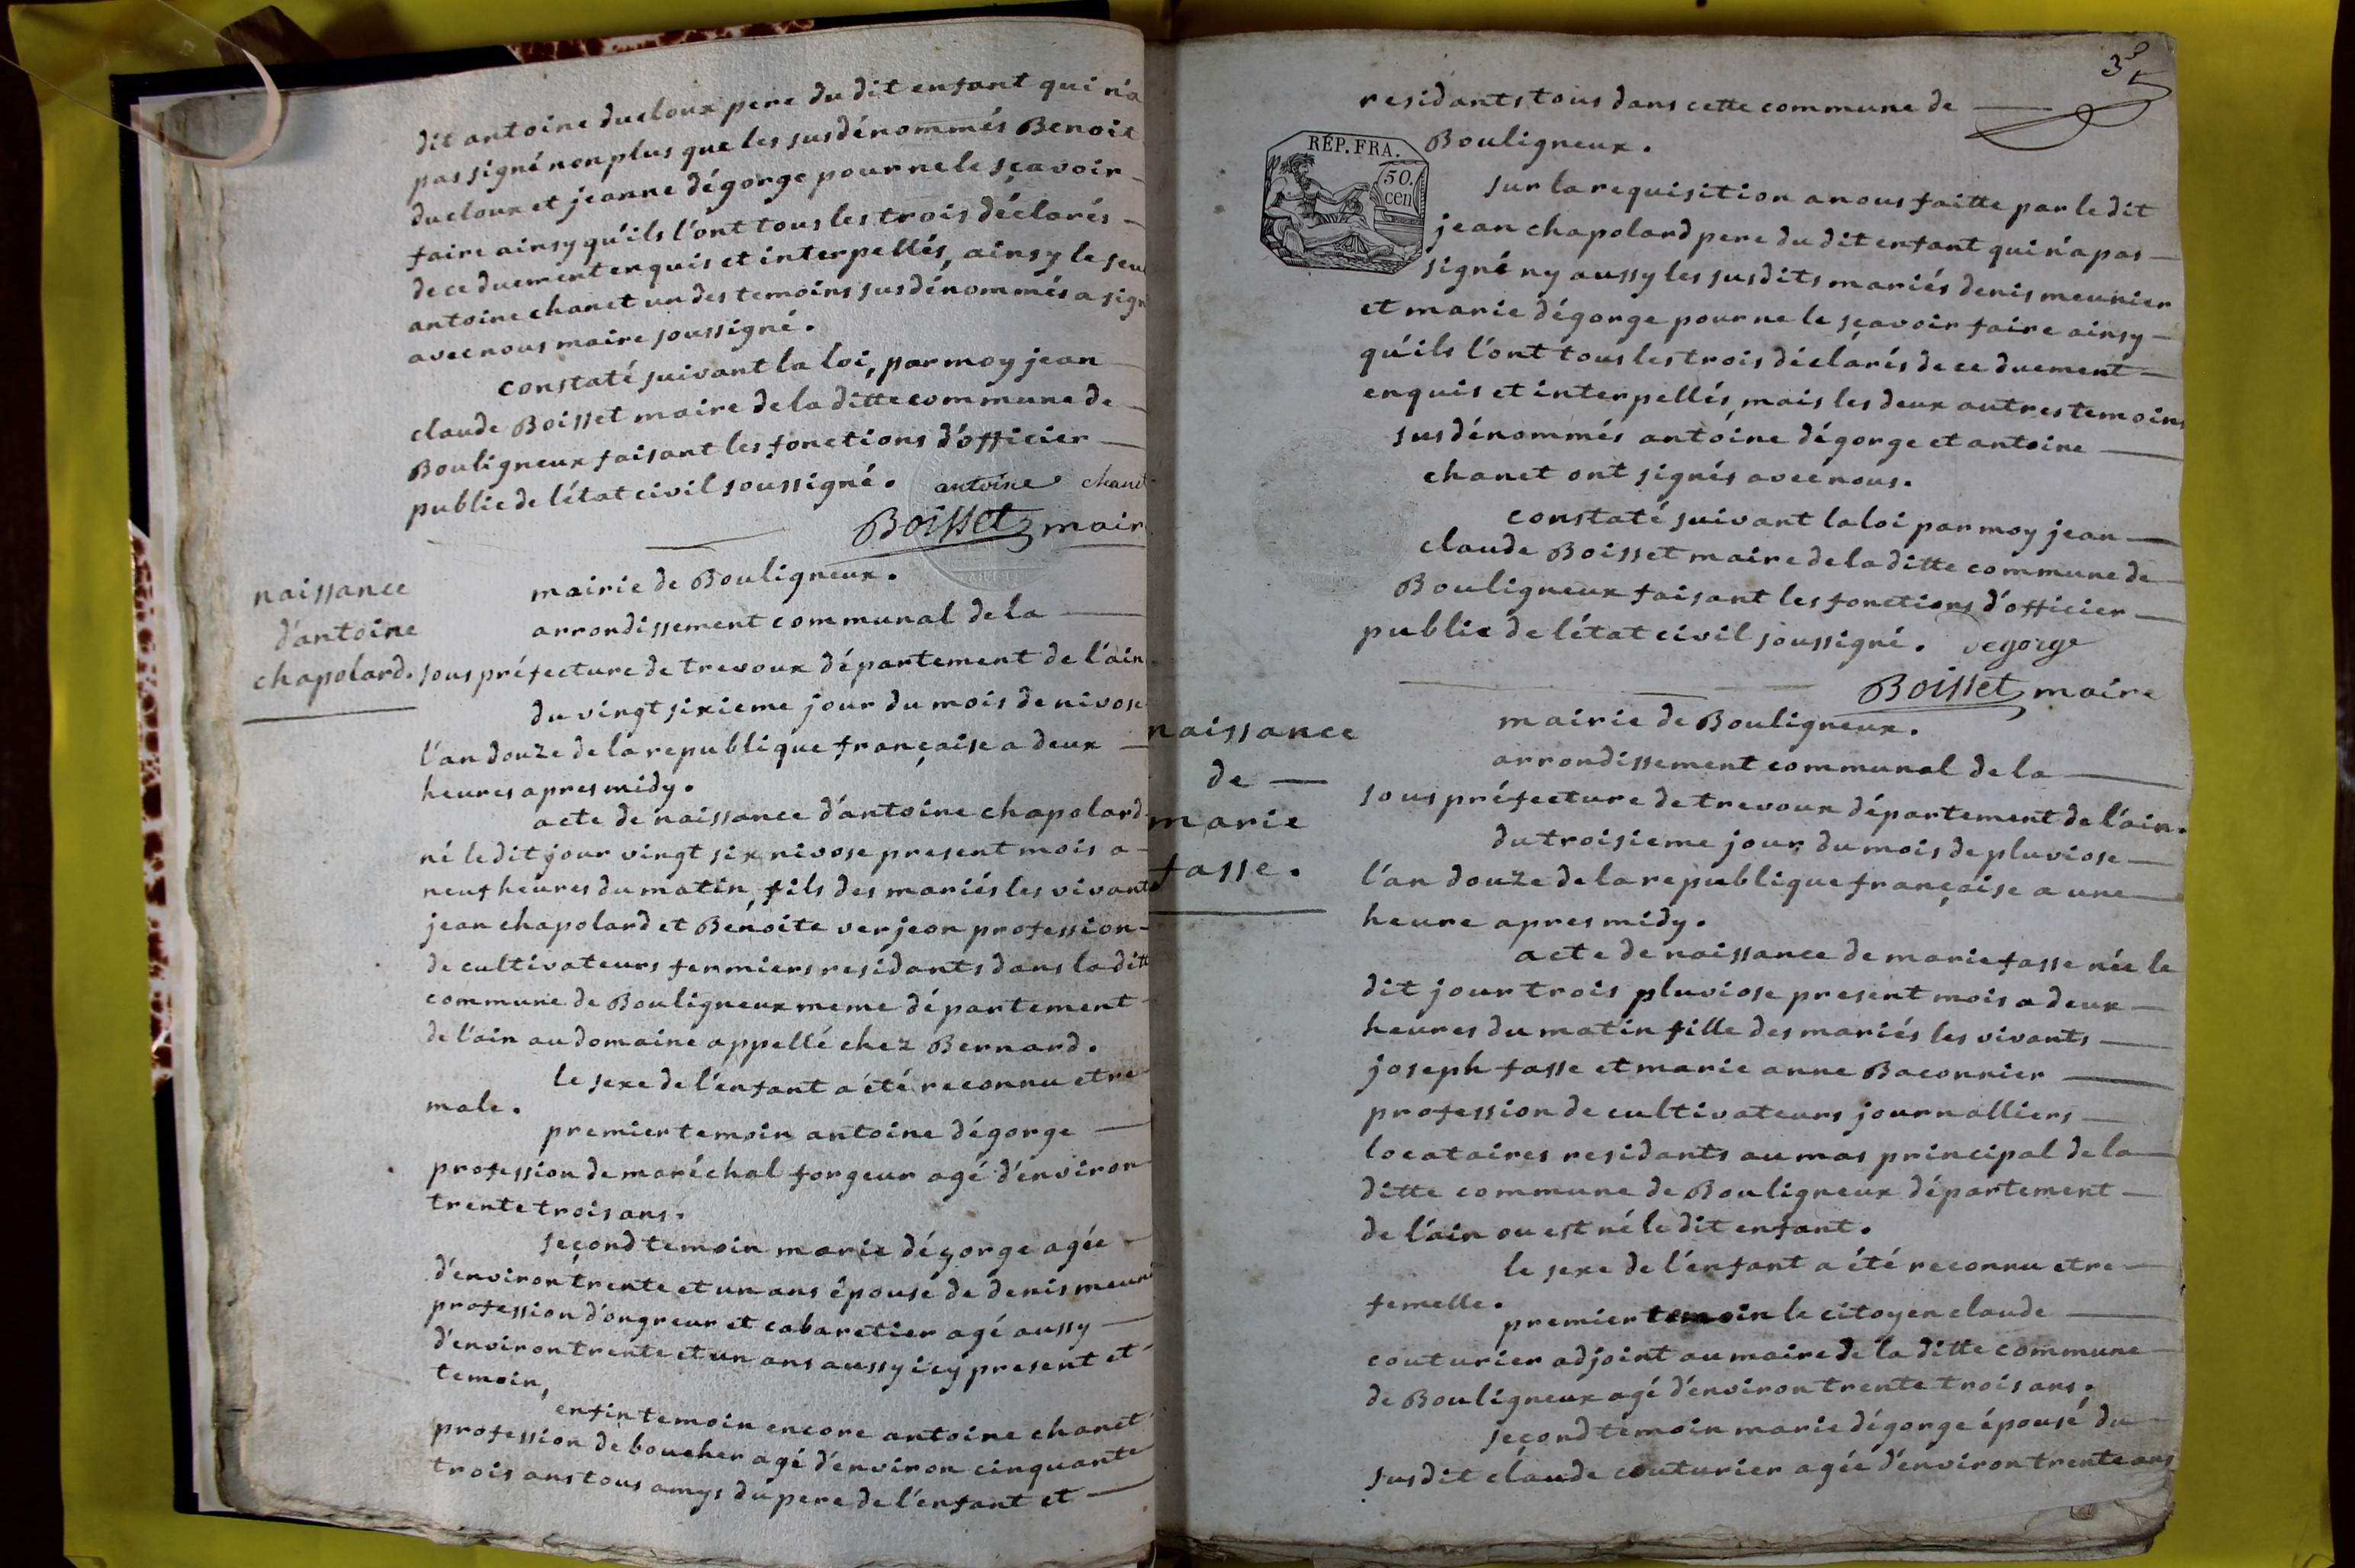 dit antoine ducloux pere du dit enfant qui n'a
pas signé non plus que les susdénommés Benoit
ducloux et jeanne dégorge pour ne le sçavoir
faire ainsy qu'ils l'ont tous les trois déclarés
de ce duement enquis et interpellés, ainsy le seul
antoine chanet un des temoins susdénommés a sign
avec nous maire soussigné.
constaté suivant la loi, par moy jean
claude Boisset maire de la ditte commune de
Bouligneux faisant les fonctions d'officier
public de l'état civil soussigné. antoine chanet
Boisset maire
naissance
d'antoine
chapolard.
mairie de Bouligneux.
arrondissement communal de la
sous préfecture de trevoux département de l'ain
du vingt sixieme jour du mois de nivose
l'an douze de la republique française a deux
heures apres midy.
acte de naissance d'antoine chapolard
né le dit jour vingt six nivose present mois a
neuf heures du matin, fils des mariés les vivants
jean chapolard et Benoite verjeon profession
de cultivateurs fermiers residants dans la ditte
commune de Bouligneux meme département
de l'ain au domaine appellé chez Bernard.
le sexe de l'enfant a été reconnu etre
male.
premier temoin antoine dégorge
profession de maréchal forgeur agé d'environ
trente trois ans.
second temoin marie dégorge agée
d'environ trente et un ans épouse de denis meuni
profession d'ongreur et cabaretier agé aussy
d'environ trente et un ans aussy icy present et
temoin,
enfin temoin encore antoine chanet
profession de boucher agé d'environ cinquante
trois ans tous amys du pere de l'enfant et
3
residants tous dans cette commune de
Bouligneux.
RÉP. FRA.
50.
cen
sur la requisition a nous faitte par le dit
jean chapolard pere du dit enfant qui n'a pas
signé ny aussy les susdits mariés denis meunier
et marie dégorge pour ne le sçavoir faire ainsy
qu'ils l'ont tous les trois déclarés de ce duement
enquis et interpellés, mais les deux autres temoins
susdénommés antoine dégorge et antoine
chanet ont signés avec nous.
constaté suivant la loi par moy jean
claude Boisset maire de la ditte commune de
Bouligneux faisant les fonctions d'officier
public de l'état civil soussigné. degorge
Boisset maire
naissance
de
marie
fasse.
mairie de Bouligneux.
arrondissement communal de la
sous préfecture de trevoux département de l'ain.
du troisieme jour du mois de pluviose
l'an douze de la republique française a une
heure apres midy.
acte de naissance de marie fasse née le
dit jour trois pluviose present mois a deux
heures du matin fille des mariés les vivants
joseph fasse et marie anne Baconnier
profession de cultivateurs journalliers
locataires residants au mas principal de la
ditte commune de Bouligneux département
de l'ain ou est né le dit enfant.
le sexe de l'enfant a été reconnu etre
femelle.
premier temoin le citoyen claude
couturier adjoint au maire de la ditte commune
de Bouligneux agé d'environ trente trois ans.
second temoin marie dégorge épouse du
susdit claude couturier agée d'environ trente ans